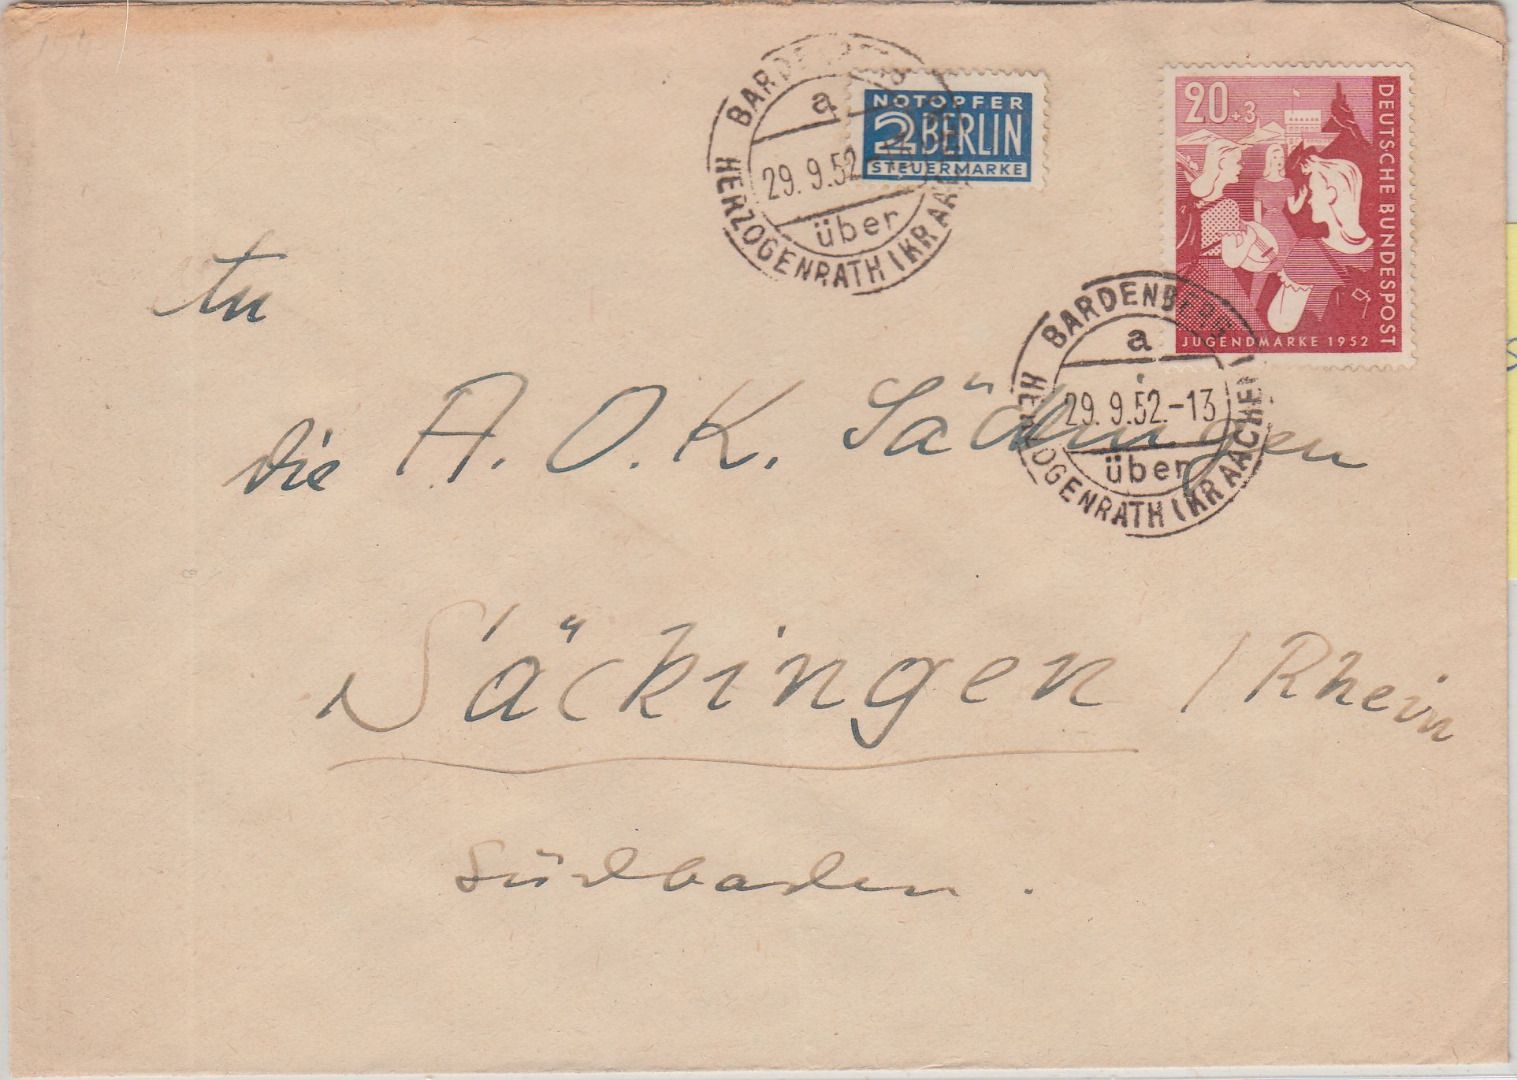 BARDENBERG
a
29.9.52
über
HERZOGENRATH (KR AACHEN)
NOTOPFER
2 BERLIN
STEUERMARKE
20+3
DEUTSCHE BUNDESPOST
JUGENDMARKE 1952
BARDENBERG
a
29.9.52.-13
über
HERZOGENRATH (KR AACHEN)
An
die A.O.K. Säckingen
Säckingen / Rhein
Südbaden.